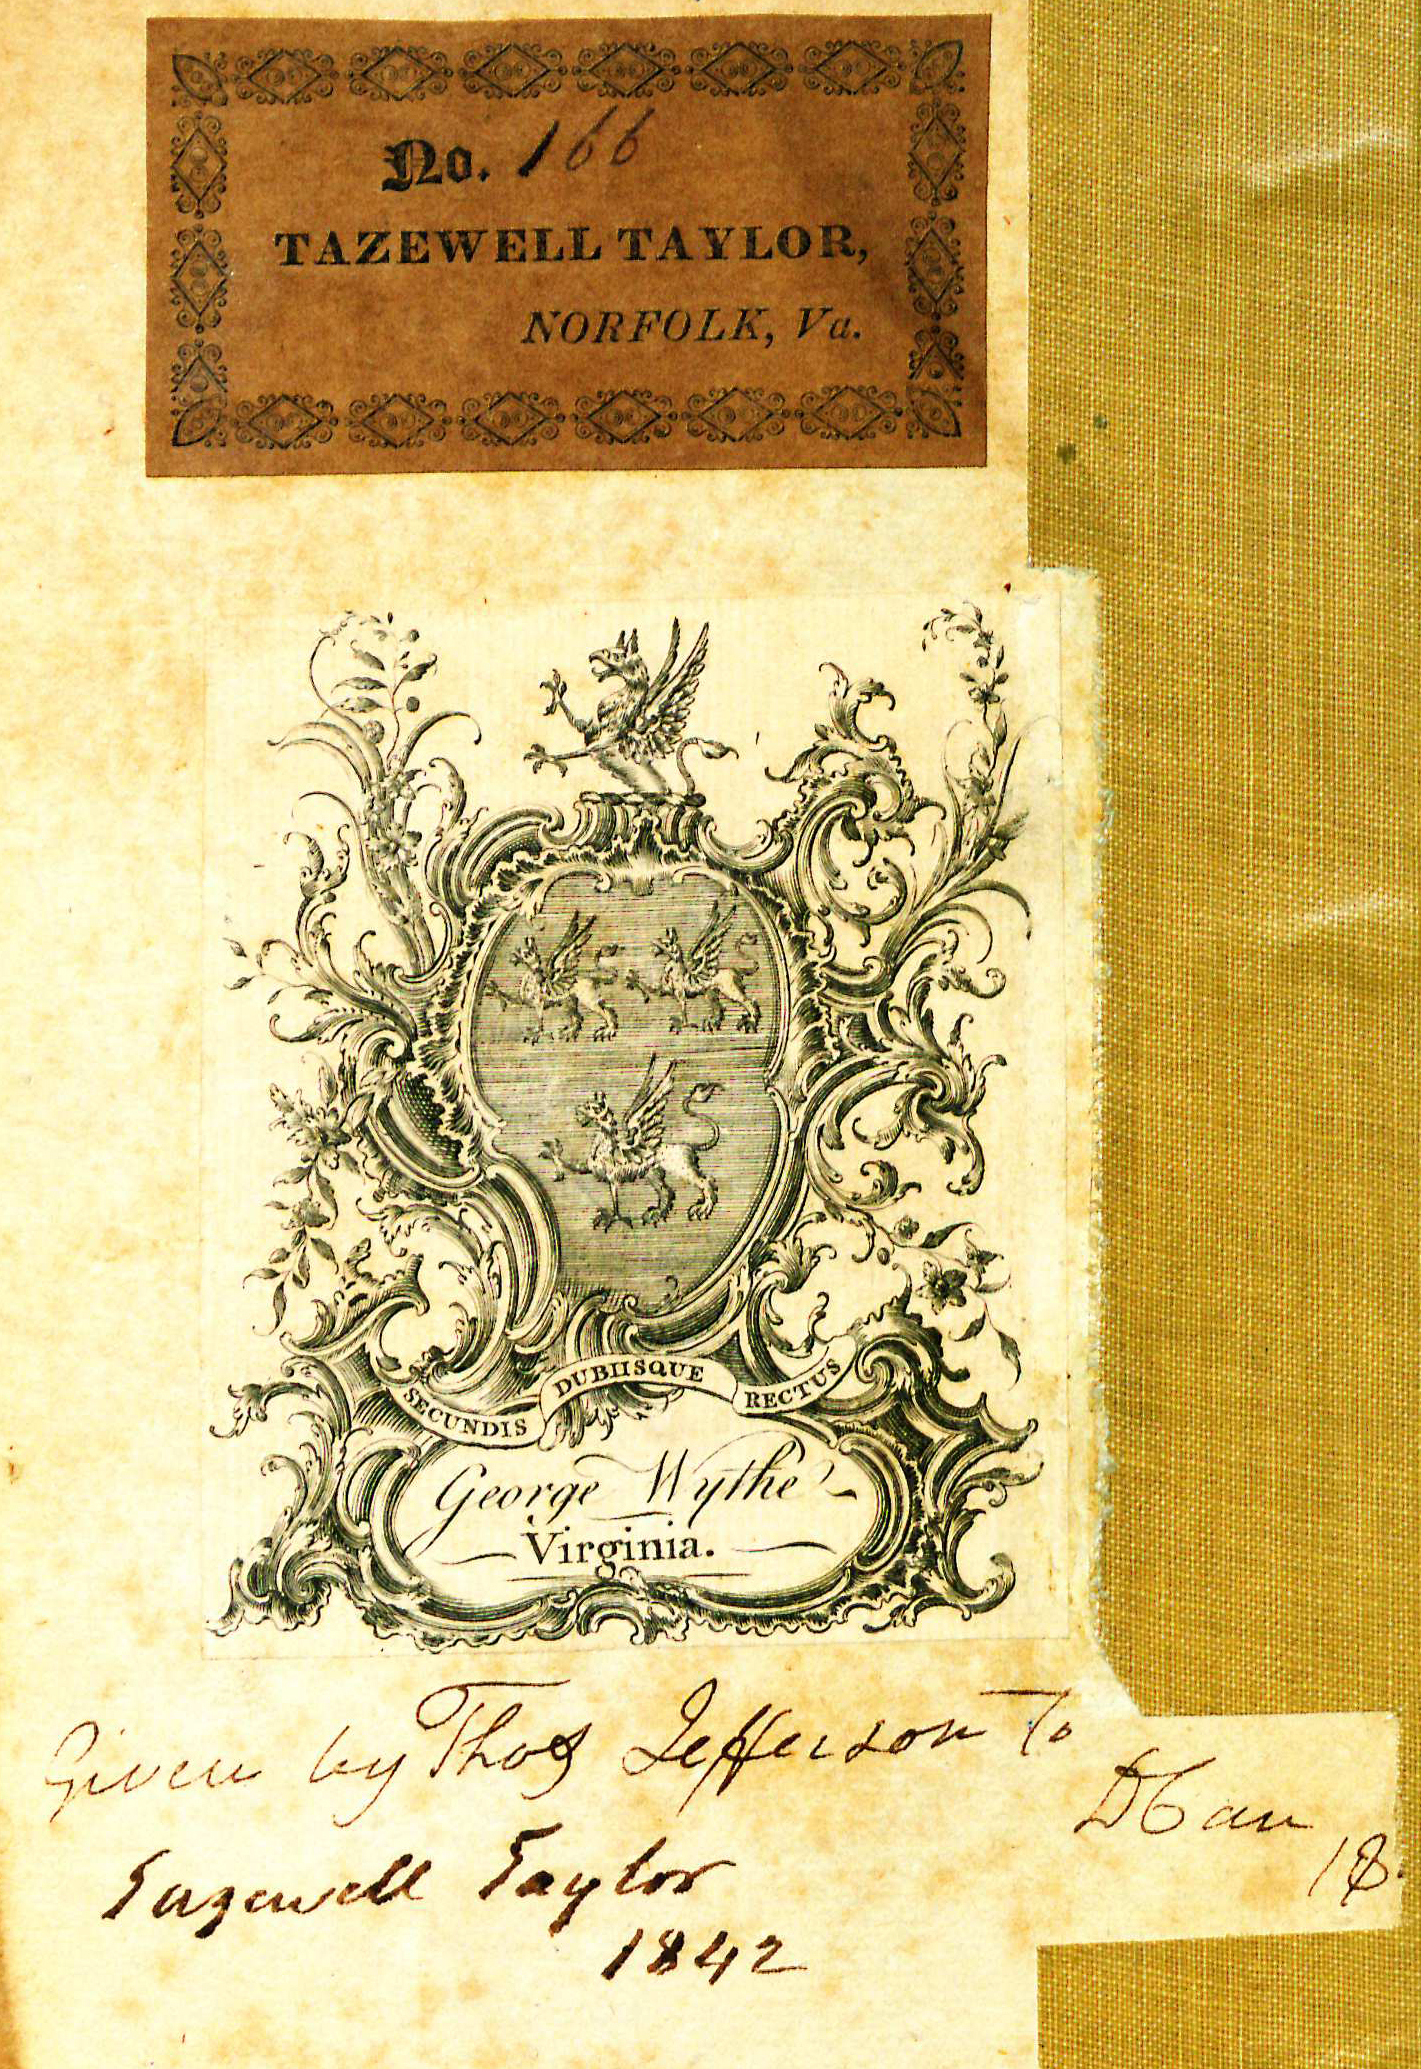 No. 166
TAZEWELL TAYLOR,
NORFOLK, Va.
SECUNDIS DUBIISQUE RECTUS
George Wythe
Virginia.
Given by Thos Jefferson To
D Carr
18
Tazewell Taylor
1842